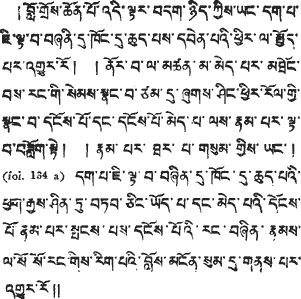 ། བློ་གྲོས་ཆེན་པོ་འདི་ལྟར་བདག་ཉིད་ཀྱིས་ཡང་དག་པ་
ཇི་ལྟ་བ་བཞིན་དུ་ཁོང་དུ་ཆུད་པས་དབེན་པའི་ཕྱིར་ལ་སྤྱོད་
པར་འགྱུར་རོ། །ནོར་བ་ལ་མཚན་མ་མེད་པར་མཐོང་
བས་རང་གི་སེམས་སྣང་བ་ཙམ་དུ་ཞུགས་ཤིང་ཕྱིར་རོལ་གྱི་
སྣང་བ་དངོས་པོ་དང་དངོས་པོ་མེད་པ་ལས་རྣམ་པར་ལྟ་
བ་བཟློག་སྟེ། །རྣམ་པར་ཐར་པ་གསུམ་གྱིས་ཡང་།
(fol. 134 a) དག་པ་ཇི་ལྟ་བ་བཞིན་དུ་ཁོང་དུ་ཆུད་པའི་
ཕྱག་རྒྱས་ཤིན་ཏུ་བཏབ་ཅིང་ཡོད་པ་དང་མེད་པའི་དངོས་
པོ་རྣམ་པར་སྤངས་པས་དངོས་པོའི་རང་བཞིན་རྣམས་
ལ་སོ་སོ་རང་གིས་རིག་པའི་བློས་མངོན་སུམ་དུ་གནས་པར་
འགྱུར་རོ།།